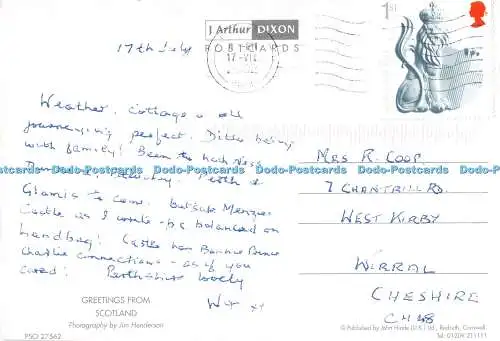 J Arthur DIXON
POSTCARDS
1ST
17th July
17-VII
Weather, cottage & all
journeying perfect. Ditto being
with family! Been to Loch Ness
Perth &
Glamis to come. Outside Menzies
Castle as I write - pc balanced on
handbag! Castle has Bonnie Prince
Charlie connections - as if you
cared! Perthshire lovely
MRS R. COOP
7 CHANTRILL RD.
WEST KIRBY
WIRRAL
CHESHIRE
CH48
GREETINGS FROM
SCOTLAND
Photography by Jim Henderson
PSO 27562
© Published by John Hinde (U.K.) Ltd., Redruth, Cornwall.
Tel No: 01209 211111
Dodo-Postcards Dodo-Postcards Dodo-Postcards Dodo-Postcards Dodo-Postcards